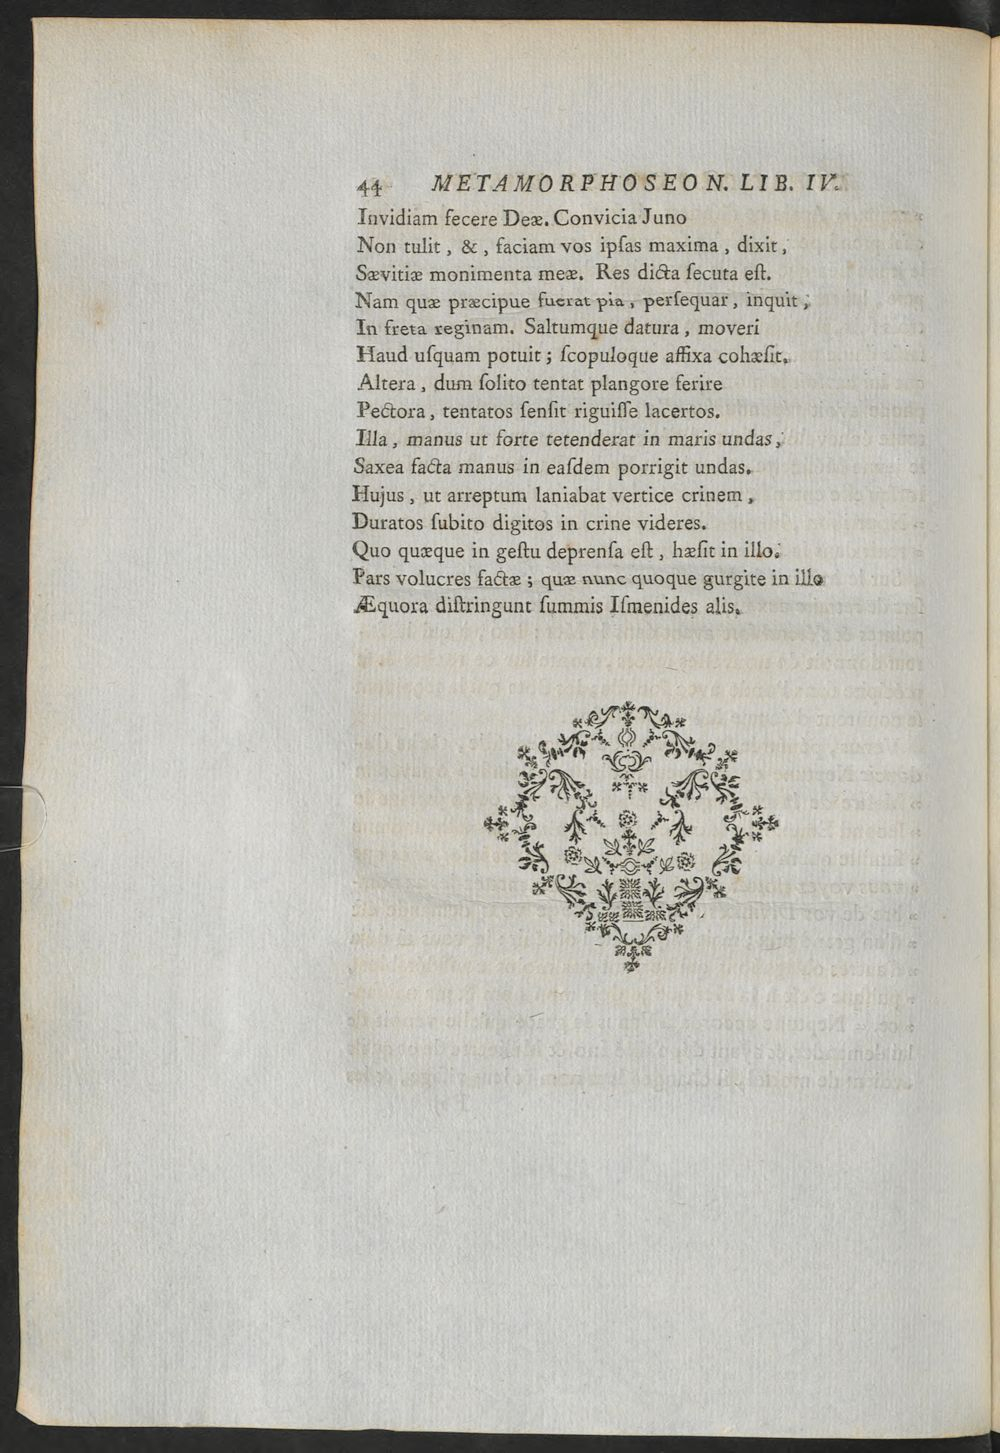 44 METAMORPHOSEON. LIB. IV.
Invidiam fecere Deæ. Convicia Juno
Non tulit, &, faciam vos ipſas maxima, dixit,
Sævitiæ monimenta meæ. Res dicta ſecuta eſt.
Nam quæ præcipue fuerat pia, perſequar, inquit,
In freta reginam. Saltumque datura, moveri
Haud uſquam potuit; ſcopuloque affixa cohæſit.
Altera, dum ſolito tentat plangore ferire
Pectora, tentatos ſenſit riguiſſe lacertos.
Illa, manus ut forte tetenderat in maris undas,
Saxea facta manus in eaſdem porrigit undas.
Hujus, ut arreptum laniabat vertice crinem,
Duratos ſubito digitos in crine videres.
Quo quæque in geſtu deprenſa eſt, hæſit in illo.
Pars volucres factæ; quæ nunc quoque gurgite in illo
Æquora diſtringunt ſummis Iſmenides alis.